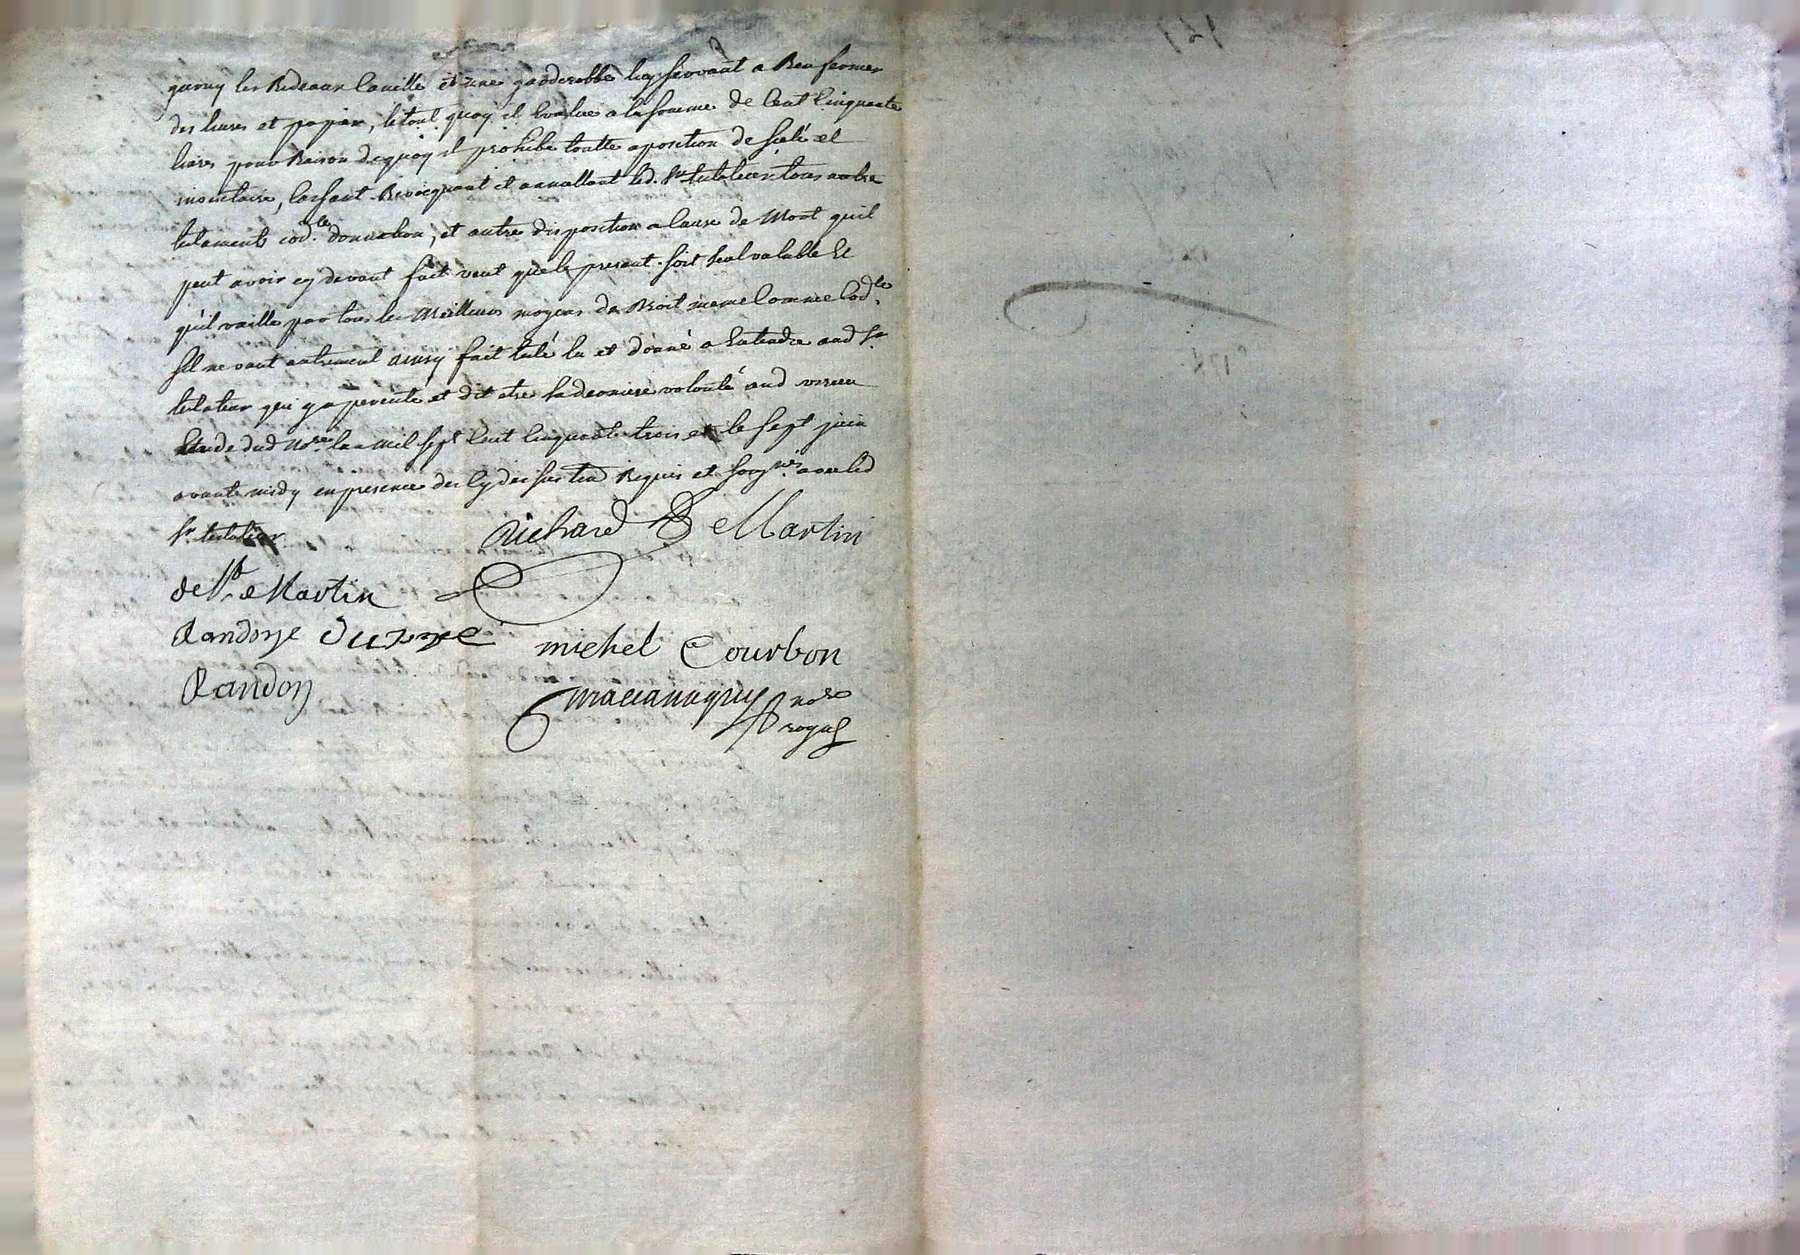 garny les Rideaux lameille et une garderobbe luy servant a Renfermer
des livres et papier, le tout quoy il Evalue a la somme de Cent Cinquante
livres pour Raison dequoy il prohibe toutte aposition de scelé et
inventaire, Cassant Revocquant et annullant led. Sr testateur tous autre
testaments cod.les donnation, et autre disposition a Cause de Mort quil
peut avoir cy devant fait veut que le present soit seul valable Et
qu'il vaille par tous les Meilleurs moyens de Droit meme Comme Cod.le
sil ne vaut autrement ainsy fait leu lu et donné a Entendre aud Sr
testateur qui y a percisté et dit etre sa derniere volonté aud
Etude dud No.re lan mil sept Cent Cinquante trois et le sept juin
avant midy en presence des Requis et soug.nes avec led
Sr testateur
Richard De Martin
de Martin
Randon
michel Courbon
Randon
no.re
royal